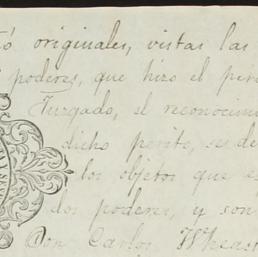 tó originales, vistas las
poderes, que hizo el peri
Juzgado, el reconocimi
dicho perito, se de
los objetos que se
dos poderes, y son
Don Carlos Wheas